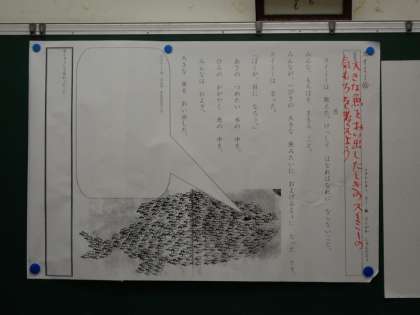 大きな魚をおい出したときのスイミーの
気もちを考えよう
スイミーは教えた。けっして、はなればなれにならないこと。
みんな、もちばをまもること。
みんなが、一ぴきの大きな魚みたいにおよげるようになったとき、
スイミーは言った。
「ぼくが、目になろう。」
あさのつめたい水の中を、
ひるのかがやく光の中を、
みんなはおよぎ、
大きな魚をおい出した。